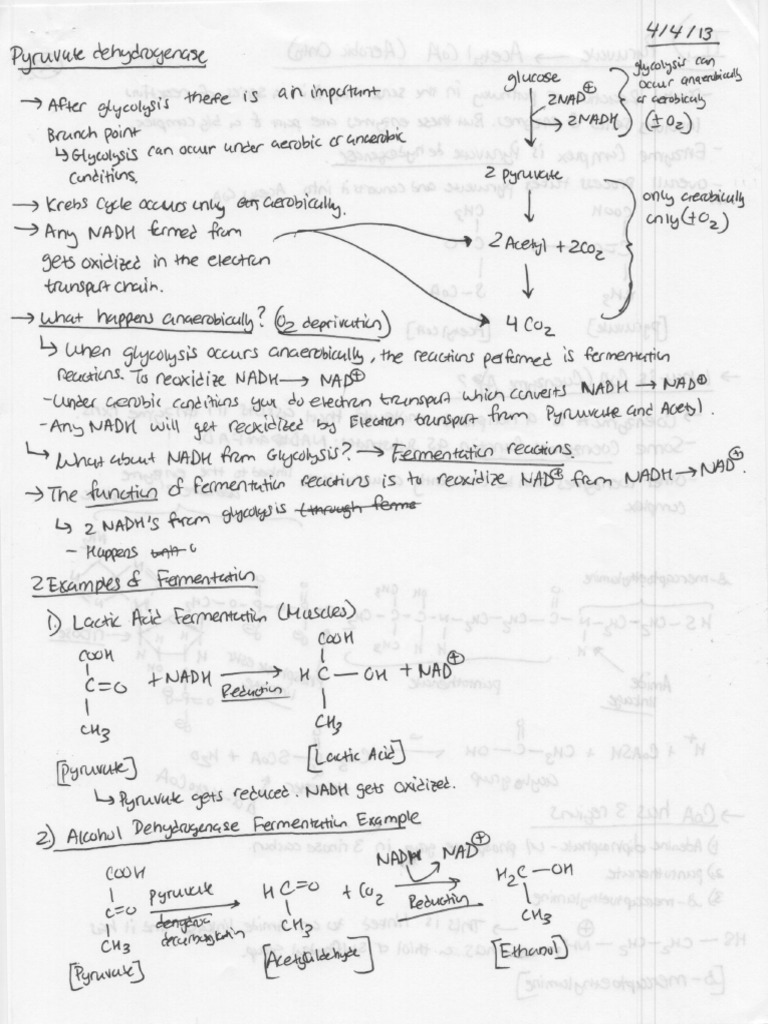 4/4/13
Pyruvate dehydrogenase
→ After glycolysis there is an important
Brunch point
↳ Glycolysis can occur under aerobic or anaerobic
conditions.
→ Krebs Cycle occurs only aerobically.
→ Any NADH formed from
gets oxidized in the electron
transport chain.
glucose
2NAD⊕
2NADH
glycolysis can
occur anaerobically
or aerobically
(±O₂)
2 pyruvate
2 Acetyl + 2CO₂
4 CO₂
only aerobically
only (+O₂)
→ What happens anaerobically? (O₂ deprivation)
↳ When glycolysis occurs anaerobically, the reactions performed is fermentation
reactions. To reoxidize NADH → NAD⊕
- Under aerobic conditions you do electron transport which converts NADH → NAD⊕
- Any NADH will get reoxidized by Electron transport from Pyruvate and Acetyl.
↳ What about NADH from Glycolysis? → Fermentation reactions.
→ The function of fermentation reactions is to reoxidize NAD⊕ from NADH → NAD⊕.
↳ 2 NADH's from glycolysis (through ferme
- Happens
2 Examples of Fermentation
1.) Lactic Acid Fermentation (Muscles)
COOH
C=O
CH₃
[Pyruvate]
+ NADH
Reduction
COOH
H C — OH + NAD⊕
CH₃
[Lactic Acid]
↳ Pyruvate gets reduced. NADH gets oxidized.
2.) Alcohol Dehydrogenase Fermentation Example
COOH
C=O
CH₃
[Pyruvate]
Pyruvate
decarboxylation
H C=O
CH₃
[Acetylaldehyde]
+ CO₂
NADH NAD⊕
Reduction
H₂C—OH
CH₃
[Ethanol]